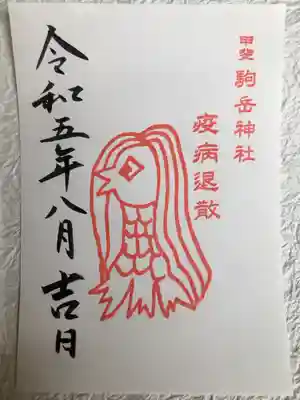 甲斐駒岳神社
疫病退散
令和五年八月吉日